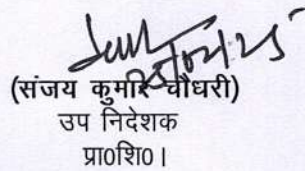 (संजय कुमार चौधरी)
उप निदेशक
प्रा०शि०।